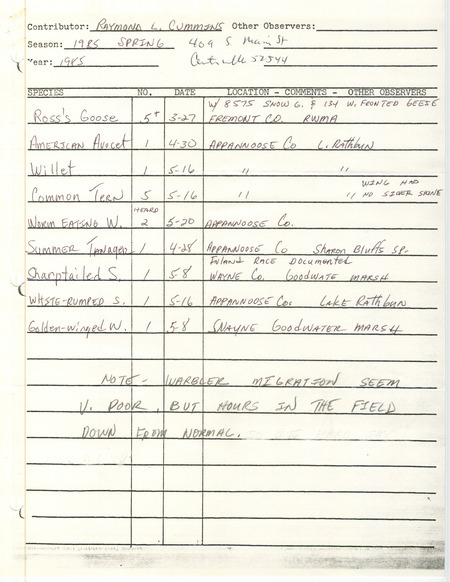 Contributor: RAYMOND L. CUMMINS Other Observers:
Season: 1985 SPRING 409 S. Main St
Year: 1985 Centerville 52544
SPECIES NO. DATE LOCATION - COMMENTS - OTHER OBSERVERS
W/ 8575 SNOW G. & 134 W. FRONTED GEESE
Ross's Goose 5+ 3-27 FREMONT CO. RWMA
AMERICAN AVOCET 1 4-30 APPANNOOSE CO L. Rathbun
Willet 1 5-16 " "
WING HAD
Common Tern 5 5-16 " " NO SIGER SHINE
HEARD
WORM EATING W. 2 5-20 APPANNOOSE CO.
Summer Tanager 1 4-28 APPANNOOSE CO Sharon Bluffs SP.
INLAND RACE DOCUMENTED
Sharptailed S. 1 5-8 WAYNE CO. GOODWATE MARSH
WHITE-RUMPED S. 1 5-16 APPANNOOSE CO. LAKE Rathbun
Golden-winged W. 1 5-8 SWAYNE GOODWATER MARSH
NOTE - WARBLER MIGRATION SEEM
V. POOR, BUT HOURS IN THE FIELD
DOWN FROM NORMAL.